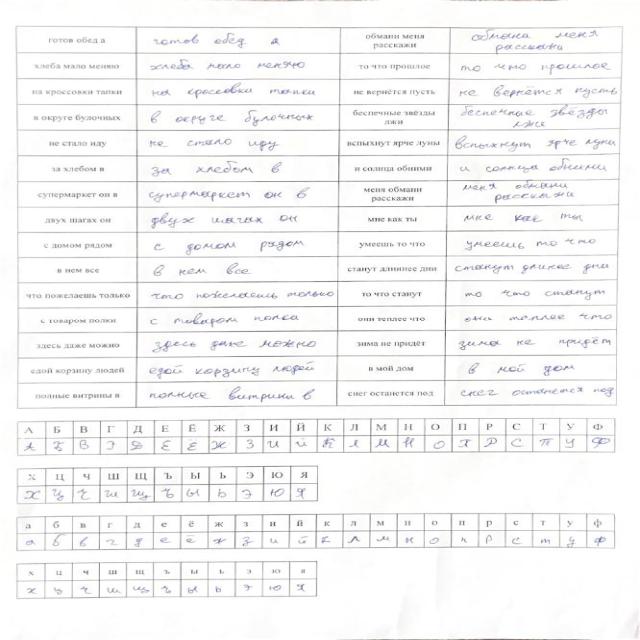 готов обед а готов обед а обмани меня обмана меня
расскажи расскажи
хлеба мало меняю хлеба мало меняю то что прошлое то что прошлое
на кроссовки тапки на кроссовки тапки не вернётся пусть не вернётся пусть
в округе булочных в округе булочных беспечные звёзды беспечные звёзды
лжи лжи
не стало иду не стало иду вспыхнут ярче луны вспыхнут ярче луны
за хлебом в за хлебом в и солнца обними и солнца обними
супермаркет он в супермаркет он в меня обмани меня обмани
расскажи расскажи
двух шагах он двух шагах он мне как ты мне как ты
с домом рядом с домом рядом умеешь то что умеешь то что
в нем все в нем все станут длиннее дни станут длинее дни
что пожелаешь только что пожелаешь только то что станут то что станут
с товаром полки с товаром полка они теплее что они теплее что
здесь даже можно здесь даже можно зима не придёт зима не придёт
едой корзину людей едой корзину людей в мой дом в мой дом
полные витрины в полные витрины в снег останется под снег останется под
А Б В Г Д Е Ё Ж З И Й К Л М Н О П Р С Т У Ф
А Б В Г Д Е Ё Ж З И Й К Л М Н О П Р С Т У Ф
Х Ц Ч Ш Щ Ъ Ы Ь Э Ю Я
Х Ц Ч Ш Щ Ъ Ы Ь Э Ю Я
а б в г д е ё ж з и й к л м н о п р с т у ф
а б в г д е ё ж з и й к л м н о п р с т у ф
х ц ч ш щ ъ ы ь э ю я
х ц ч ш щ ъ ы ь э ю я